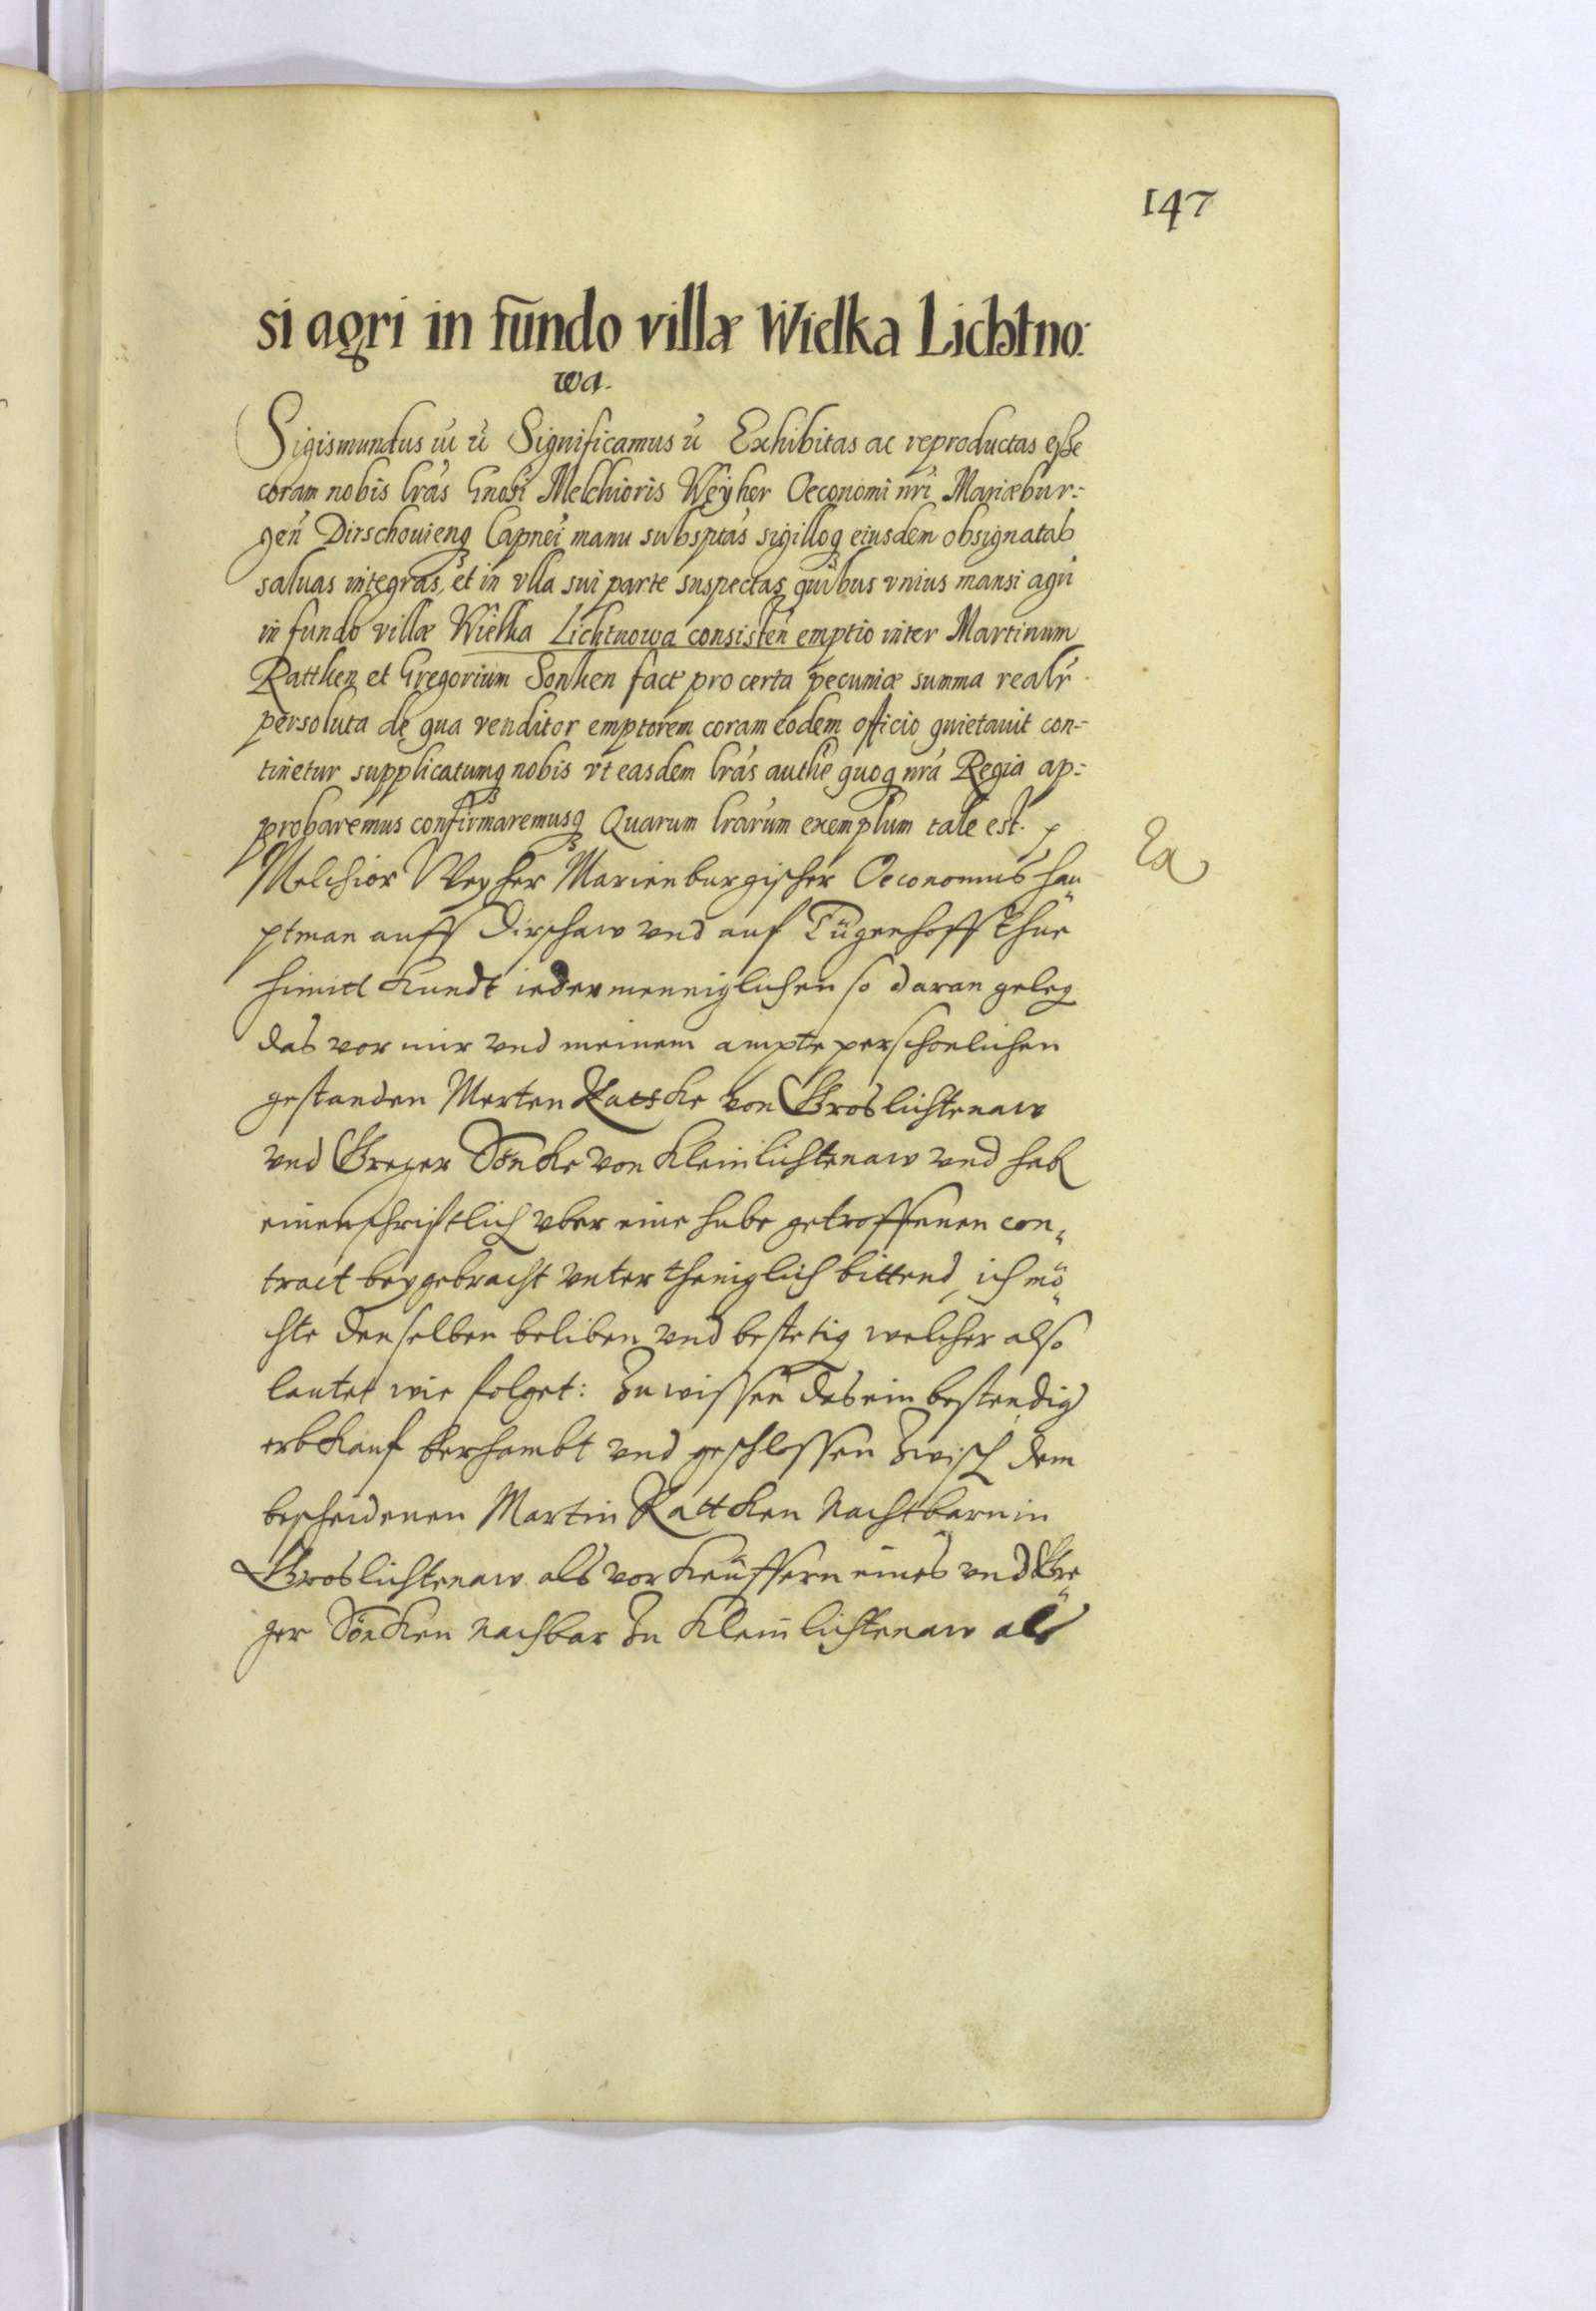 147
si agri in fundo villæ Wielka Lichtno:
wa.
Sigismundus iii ü Significamus ü Exhibitas ac reproductas esse
coram nobis lrás Gnosi Melchioris Weÿher Oeconomi nri Mariæbur:
gen Dirschouienq Capnei manu subsptas sigilloq eiusdem obsignatas
saluas integras, et in vlla sui parte suspectas quibus vnius mansi agri
in fundo villæ Wielka Lichtnowa consisten emptio inter Martinum
Rattken et Gregorium Sonken fact pro certa pecuniæ summa realr
persoluta de qua venditor emptorem coram eodem officio quietauit con-
tinetur supplicatumq nobis vt easdem lrás authe quoq nrá Regia ap:
probaremus confirmaremusq Quarum lrarum exemplum tale est.
Melchior Weyher Marienburgischer Oeconomus hau
ptman auff Dirschaw vnd auf Tügenhoff thue
himit kundt iedermenniglichen so daran geleg
das vor mir vnd meinem ampte perschoelichen
gestanden Merten Ratske von Groslichtenaw
vnd Greger Söncke von Kleinlichtenaw vnd hab
einen schriftlich vber eine hube getroffenen con„
tract beygebracht vntertheniglich bittend, ich mö
chte denselben beliben vnd bestetig welcher also
lautet wie folget: Zu wissen das ein bestendig
erbkauf berhambt vnd geschlossen zwisch dem
bescheidenen Martin Rattken Nachtbarn in
Groslichtenaw als vorkeuffern eines vnd Gre„
ger Söncken nachbar zu Kleinlichtenaw als